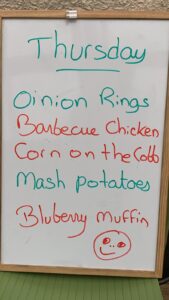 Thursday
Oinion Rings
Barbecue Chicken
Corn on the Cobb
Mash potatoes
Bluberry muffin